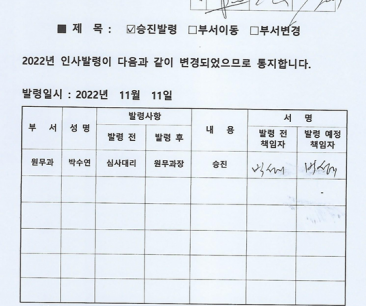 ■ 제 목 : ☑승진발령 □부서이동 □부서변경
2022년 인사발령이 다음과 같이 변경되었으므로 통지합니다.
발령일시 : 2022년 11월 11일
부 서 성 명 발령사항 내 용 서 명
발령 전 발령 후 발령 전 책임자 발령 예정 책임자
원무과 박수연 심사대리 원무과장 승진